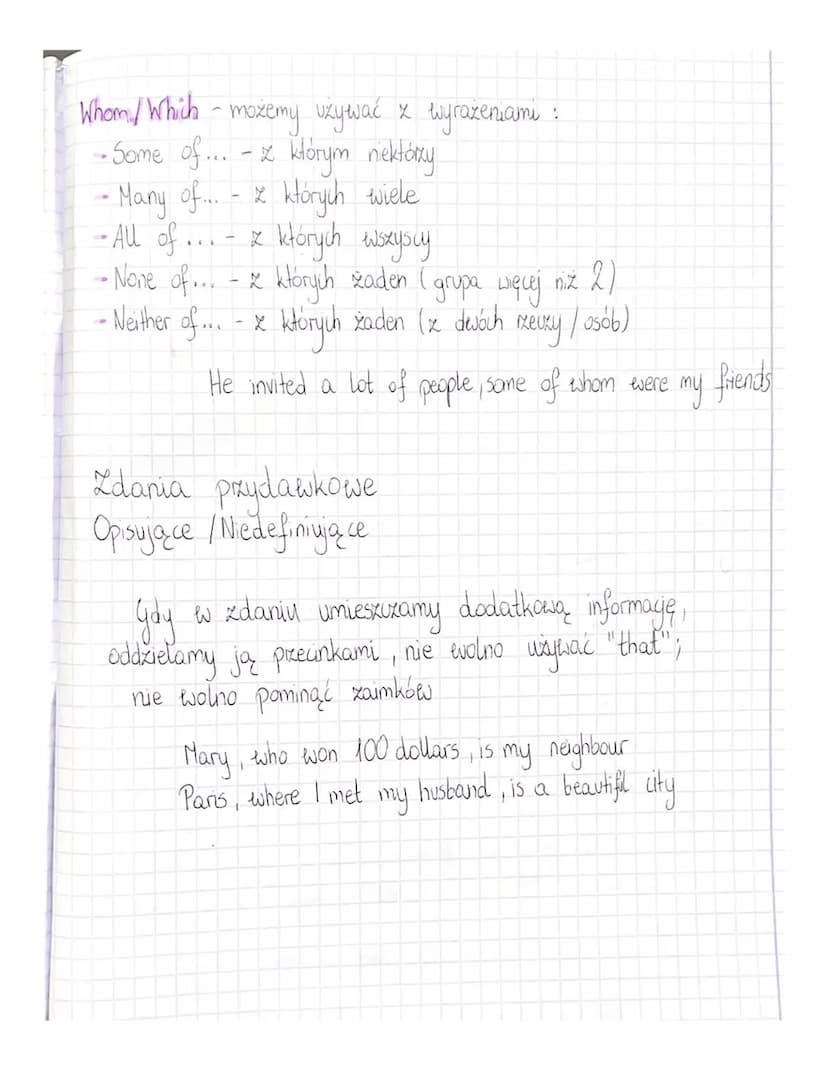 Whom/Which - możemy używać z wyrażeniami :
- Some of... - z którym niektórzy
- Many of... - z których wiele
- All of ... - z których wszyscy
- None of... - z których żaden (grupa więcej niż 2)
- Neither of... - z których żaden (z dwóch rzeczy / osób)
He invited a lot of people, some of whom were my friends
Zdania przydawkowe
Opisujące / Niedefiniujące
Gdy w zdaniu umieszczamy dodatkową informację,
oddzielamy ją przecinkami, nie wolno używać "that";
nie wolno pominąć zaimków
Mary, who won 100 dollars, is my neighbour
Paris, where I met my husband, is a beautiful city